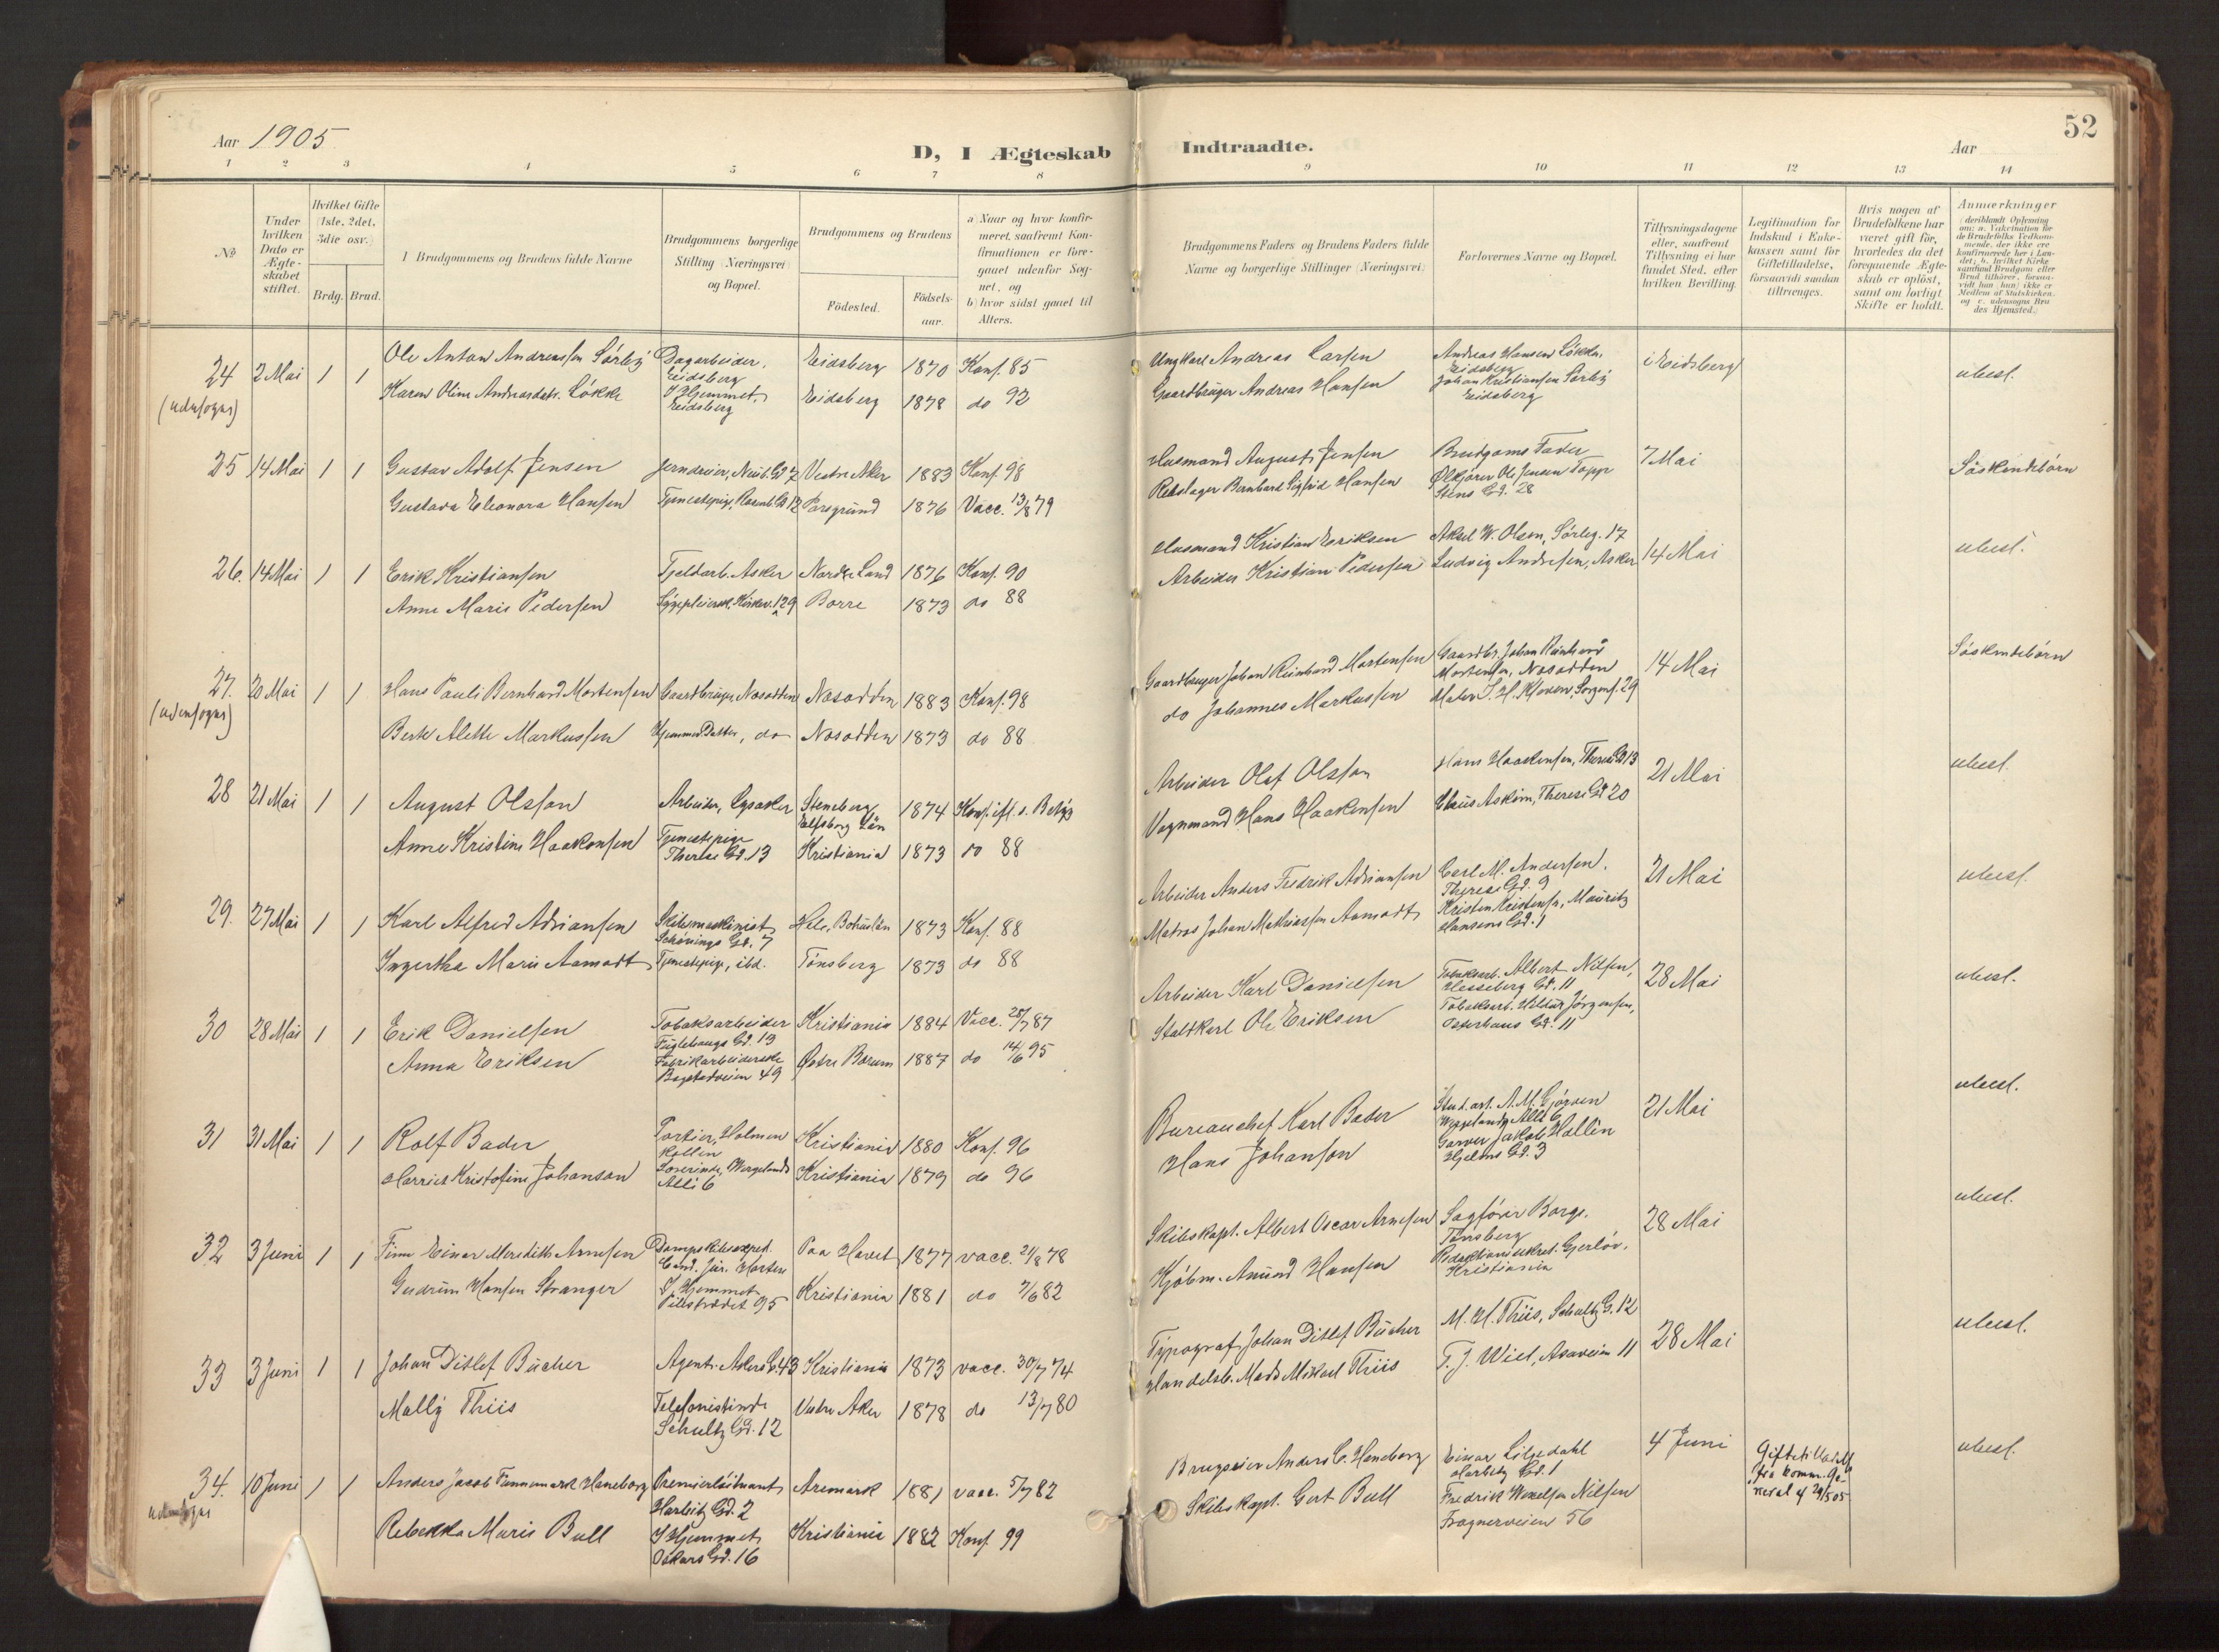 Aar 1905
D, I Ægteskab Indtraadte.
Aar
52
1 2 3 4 5 6 7 8 9 10 11 12 13 14
No
Under hvilken Dato er Ægteskabet stiftet.
Hvilket Gifte (1ste, 2det, 3die osv.)
Brdg. Brud.
Brudgommens og Brudens fulde Navne
Brudgommens borgerlige Stilling (Næringsvei) og Bopæl.
Brudgommens og Brudens
Födested.
Födselsaar.
a) Naar og hvor konfirmeret, saafremt Konfirmationen er foregaaet udenfor Sognet, og
b) hvor sidst gaaet til Alters.
Brudgommens Faders og Brudens Faders fulde Navne og borgerlige Stillinger (Næringsvei)
Forlovernes Navne og Bopæl.
Tillysningsdagene eller, saafremt Tillysning ei har fundet Sted, efter hvilken Bevilling.
Legitimation for Indskud i Enkekassen samt for Giftetilladelse, forsaavidt saadan tiltrænges.
Hvis nogen af Brudefolkene har været gift för, hvorledes da det foregaaende Ægteskab er oplöst, samt om lovligt Skifte er holdt.
Anmærkninger
24 2 Mai 1 1 Ole Anton Andreassen Sørby Dagarbeider, Eidsberg Eidsberg 1870 Konf. 85 Ungkarl Andreas Larsen Andreas Hansen Løkke, Eidsberg i Eidsberg ubesl.
(udensogns) Karen Oline Andreasdatr. Løkke I Hjemmet, Eidsberg Eidsberg 1878 do 92 Gaardbruger Andreas Hansen Johan Kristiansen Sørby Eidsberg
25 14 Mai 1 1 Gustav Adolf Jensen Vestre Aker 1883 Konf. 98 Husmand August Jensen Brudgoms Fader 7 Mai Söskendebörn
Gustava Eleonora Hansen Porsgrund 1876 Vacc. 13/8 79 Rebslager Bernhard Sigfrid Hansen Ølkjører Ole Jensen Topp Stens Gd. 28
26. 14 Mai 1 1 Erik Kristiansen Asker Nordre Land 1876 Konf. 90 Husmand Kristian Eriksen Aksel W. Olsen, Sörlig. 17 14 Mai ubesl.
Anne Marie Pedersen Borre 1873 do 88 Arbeider Kristian Pedersen Ludvig Andresen, Asker
27. 20 Mai 1 1 Hans Pauli Bernhard Mortensen Gaardbruger, Nesodden Nesodden 1883 Konf. 98 Gaardbruger Johan Reinhard Mortensen Gaardbr. Johan Reinhard Mortensen, Nesodden 14 Mai Söskendebörn
(udensogns) Berte Alette Markussen do Nesodden 1873 do 88 do Johannes Markussen
28 21 Mai 1 1 August Olsson Arbeider, Lysaker Steneberg Elfsborg Län 1874 Konf. ifl. s. Betyg Arbeider Olof Olsson Hans Haakensen, Therese Gd 13 21 Mai ubesl.
Anne Kristine Haakensen Tjenestepige Therese Gd. 13 Kristiania 1873 do 88 Vognmand Hans Haakensen Askim, Therese Gd 20
29. 27 Mai 1 1 Karl Alfred Adriansen Skibsmaskinist Schönings Gd. 7 1873 Konf. 88 Arbeider Anders Fredrik Adriansen Carl M. Andersen, Therese Gd. 9 21 Mai ubesl.
Ingertha Marie Aamodt Tjenestepige, ibd. Tönsberg 1873 do 88 Matros Johan Mathiassen Aamodt Kristen Kristensen, Mauritz Hansens Gd. 1
30 28 Mai 1 1 Erik Danielsen Tobaksarbeider Fuglehaugs Gd. 13 Kristiania 1884 Vacc. 87 Arbeider Karl Danielsen Tobaksarb. Albert Nilsen, Hesseberg Gd. 11 28 Mai ubesl.
Anna Eriksen Fabrikarbeiderske Bogstadveien 49 Østre Bærum 1887 do 14/6 95 Staldkarl Ole Eriksen Tobaksarb. Jörgensen, Osterhaus Gd. 11
31 31 Mai 1 1 Rolf Bader Portier, Holmenkollen Kristiania 1880 Konf. 96 Bureauchef Karl Bader Wergelands Allé 6 21 Mai ubesl.
Harriet Kristofine Johanson Wergelands Allé 6 Kristiania 1879 do 96 Hans Johanson Garver Jakob Hallin Hjelms Gd. 3
32 3 Juni 1 1 Finn Einar Meredith Arnesen Dampskibsexped. Cand. jur. Horten Paa Havet 1877 vacc. 21/8 78 Skibskapt. Albert Oscar Arnesen Sagförer Borge, Tönsberg 28 Mai ubesl.
Gudrun Hansen Stranger I Hjemmet Pilestrædet 95 Kristiania 1881 do 7/6 82 Kjöbm. Amund Hansen Redaktionssekret. Gjerlöv, Kristiania
33 3 Juni 1 1 Johan Ditlef Bücher Agent. Akers G. 43 Kristiania 1873 vacc. 30/7 74 Typograf Johan Ditlef Bücher M. H. Thiis, Schultz G. 12 28 Mai ubesl.
Mally Thiis Telefonistinde Schultz Gd. 12 Vestre Aker 1878 do 13/7 80 Handelsb. Mads Mikael Thiis T. J. Wiel, Asaveien 11
34. 10 Juni 1 1 Anders Jacob Tannemark Haneborg Premierlöitnant Harbitz Gd. 2 Aremark 1881 vacc. 5/7 82 Brugseier Anders C. Haneborg Einar Liljedahl Harbitz Gd. 1 4 Juni Giftetilladelse fra komm. General af 29/5 05 ubesl.
udensogns Rebekka Marie Bull I Hjemmet Oskars Gd. 16 Kristiania 1882 Konf. 99 Skibskapt. Gert Bull Fredrik Wexelsen Nilsen Frognerveien 56